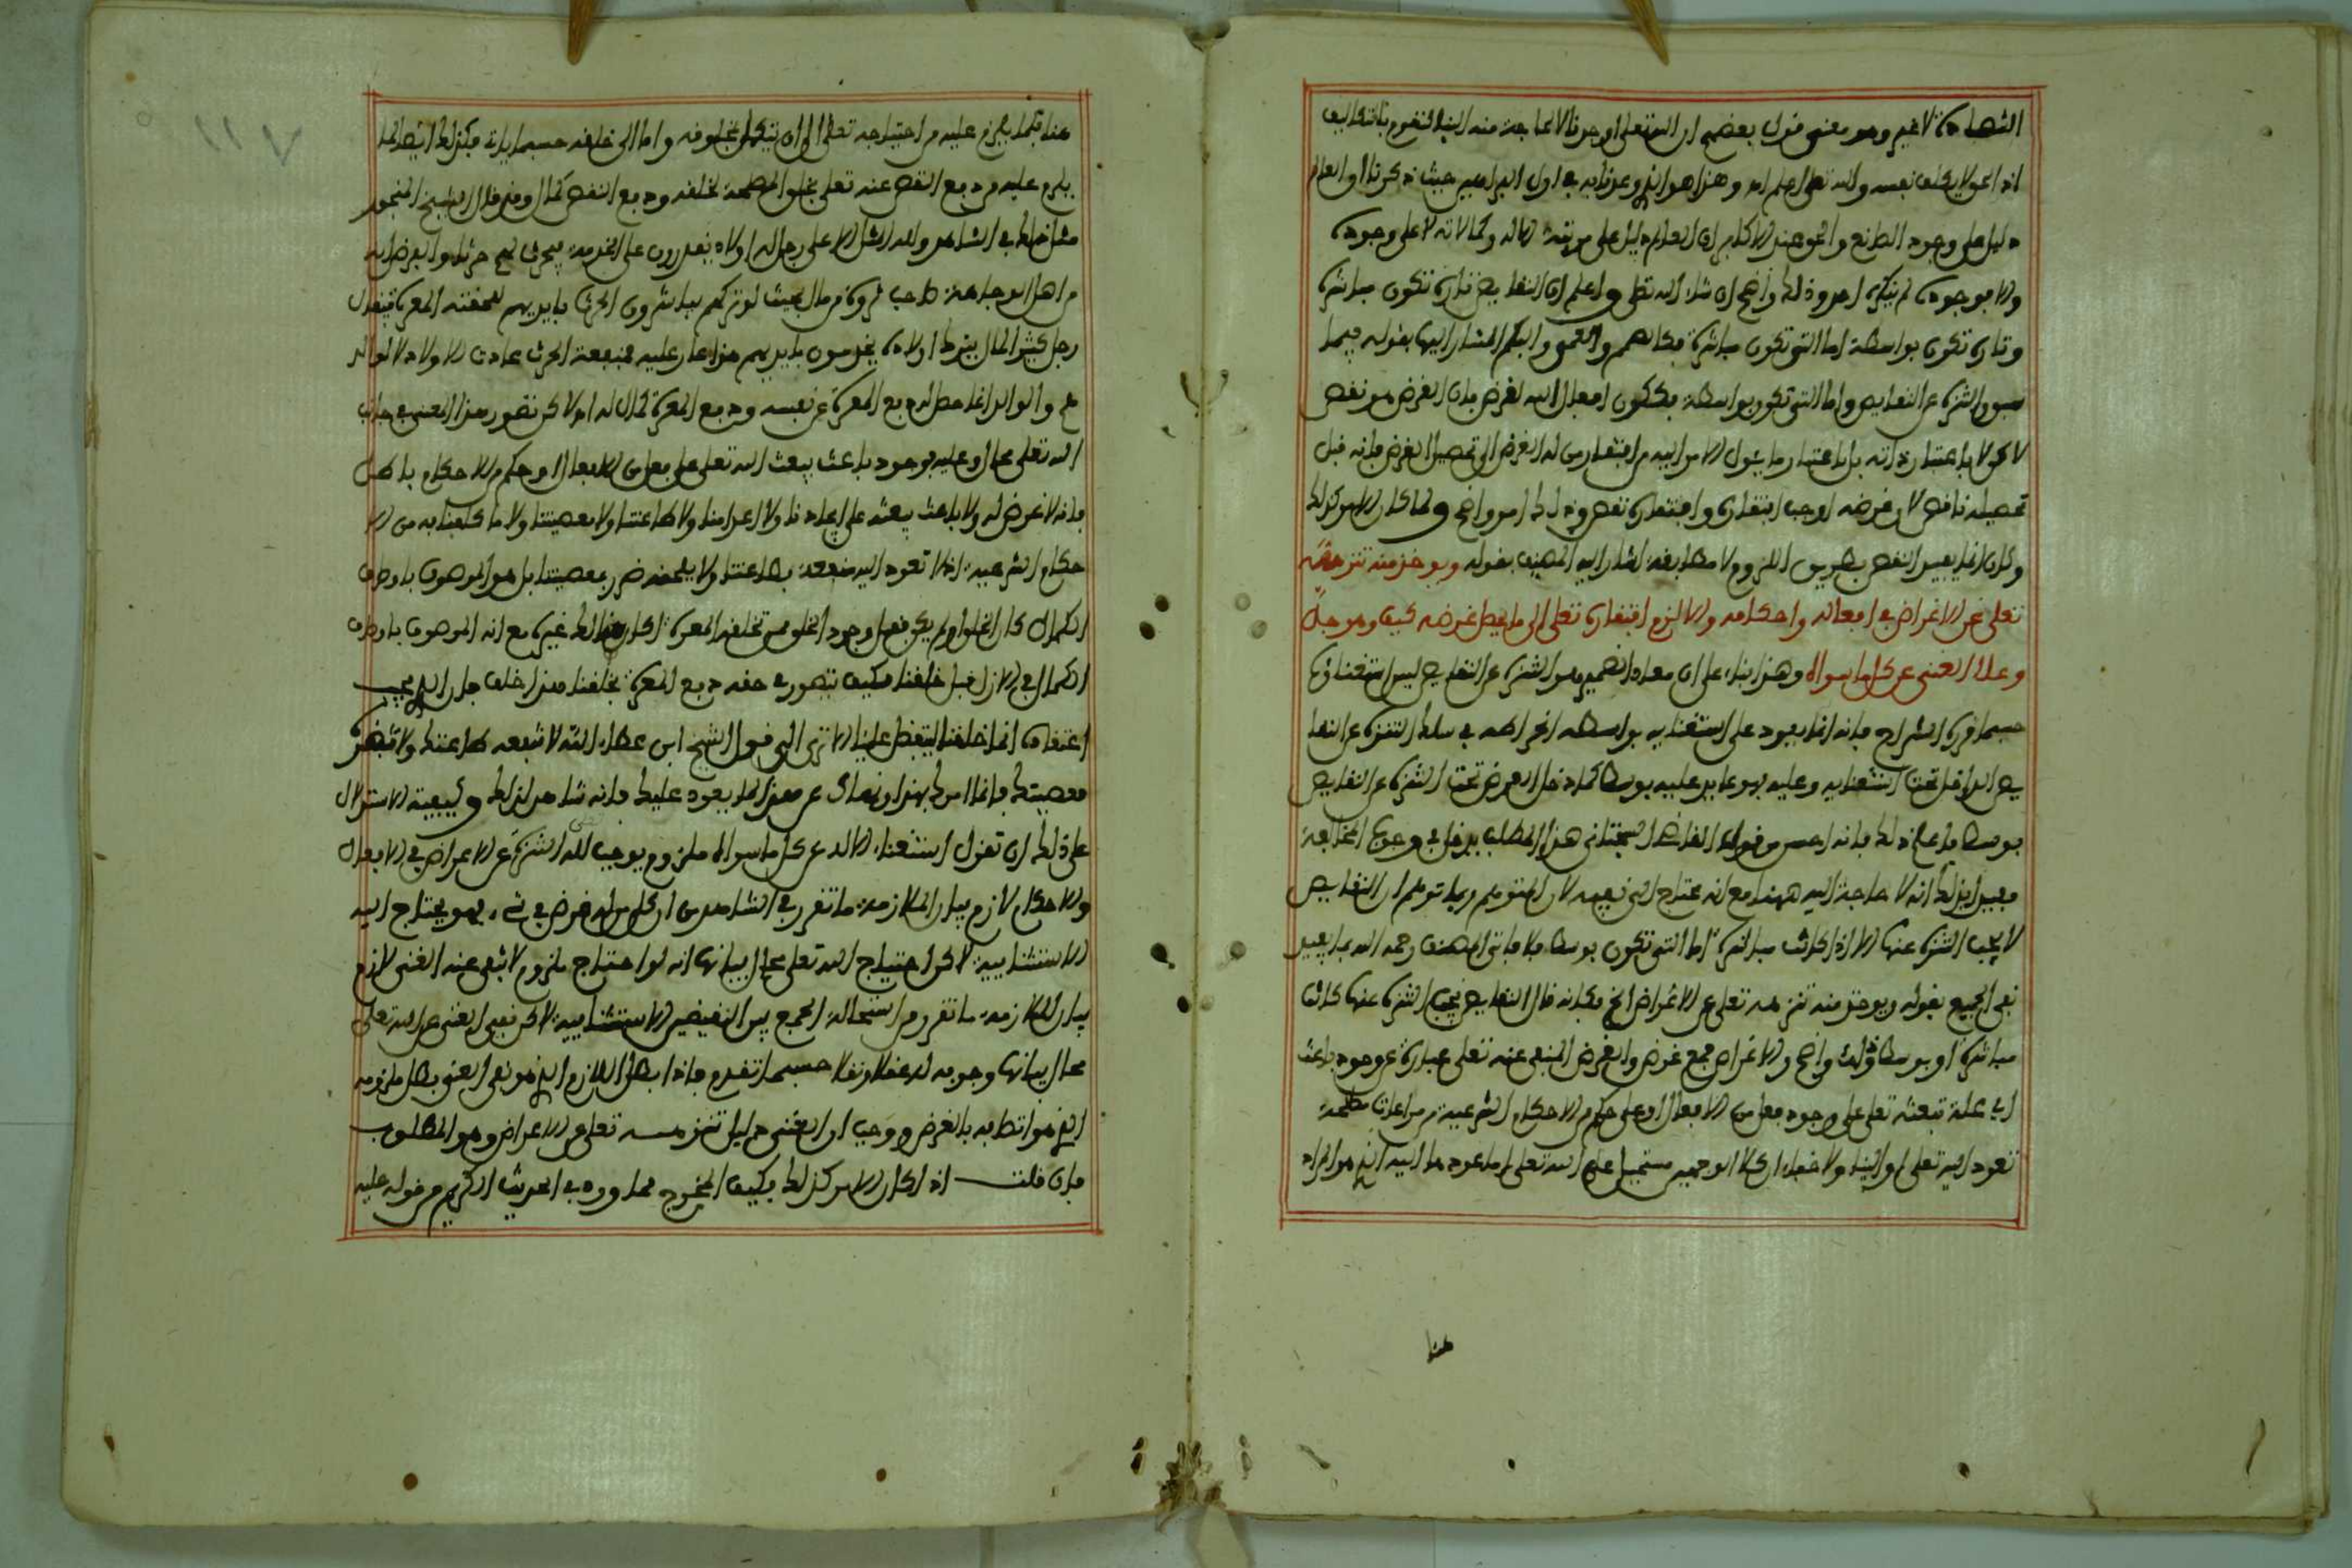 الشهادة لا غير وهو معنى قول بعضهم ان الله تعلى اوجدنا لا لحاجة منه الينا لنقوم بالتكاليف
اذ المولا يكلف نفسه والله تعلى اعلم اه وهذا هو الذي وعدنا به في اول البراهين حيث ذكرنا ان العالم
دليل على وجود الصانع
ولا موجود لم ينكره احد وذلك واضح ان شاء الله تعلى واعلم ان النقايص تارة تكون مباشرة
وتارة تكون بواسطة اما التي تكون مباشرة فكالصمم والعمى والبكم المشار اليها بقوله فيما
سبق والتنزه عن النقايص واما التي تكون بواسطة فككون افعال الله لغرض فان الغرض هو نقص
لاكن لا باعتبار ذاته بل باعتبار ما يئول الامر اليه من افتقار من له الغرض الى تحصيل الغرض فانه قبل
تحصيله ناقص لان غرضه اوجب افتقاره وافتقاره نقص وذلك امر واضح ولما كان الامر كذلك
وكان انما يفيد النقص بطريق اللزوم لا مطابقة اشار اليه المصنف بقوله ويوخذ منه تنزهه
تعلى عن الاغراض في افعاله واحكامه والا لزم افتقاره تعلى الى ما يحصل غرضه كيف وهو جل
وعلا الغنى عن كل ما سواه وهذا بناء على ان معاد الضمير هو التنزه عن النقايص ليس استغناؤه
حسبما قرره الشراح فانه انما يعود على استغنايه بواسطة انخراطه في سلك التنزه عن النقا
يص الداخل تحت استغنايه وعليه فهو عايد عليه بوسط كما دخل الغرض تحت التنزه عن النقايص
بوسط فاعلم ذلك فانه احسن من قول الفاضل السجتاني هذا المطلب يدخل في وجوب المخالفة
فقيل لذلك انه لا حاجة اليه ههنا مع انه محتاج الى نفيه لان المتوهم ربما توهم ان النقايص
لا يجب التنزه عنها الا اذا كانت مباشرة اما التي تكون بوسط فلا فاتى المصنف رحمه الله بما يفيد
نفي الجميع بقوله ويوخذ منه تنزهه تعلى عن الاغراض الخ فكانه قال النقايص يجب التنزه عنها كانت
مباشرة او بوسط وذلك واضح والاغراض جمع غرض والغرض المنفي عنه تعلى عبارة عن وجود باعث
اي علة تبعثه تعلى على وجود فعل من الافعال او على حكم من الاحكام الشرعية من مراعات مصلحة
تعود اليه تعلى او الينا ولا خفاء ان كلا الوجهين مستحيل على الله تعلى اما عودها اليه الذي هو المراد
هنا
هنا فلما يلزم عليه من احتياجه تعلى الى ان يتكمل بمخلوقه واما الى خلقه حسبما يات فكذلك ايضا لما
يلزم عليه من دفع النقص عنه تعلى بخلق المصلحة لخلقه ودفع النقص كمال وقد قال الشيخ المنجور
مثال ذلك في الشاهد ولله المثل الاعلى رجل له اولاد يقدرون على الخدمة
من اهل الوجاهة صاحب ثروة من مال بحيث لو تركهم يباشرون الحرث بايديهم لحقته المعرة فيقال
رجل كثير المال يترك اولاده يخدمون بايديهم هذا عار عليه فمنفعة الحرث عادت للاولاد لا لوالد
هم والوالد انما حصل له دفع المعرة عن نفسه ودفع المعرة كمال له اه لاكن تصور هذا المعنى في جانب
الله تعلى محال وعليه فوجود باعث يبعث الله تعلى على فعل من الافعال او حكم من الاحكام باطل
فانه لا غرض له ولا باعث يبعثه على ايجادنا ولا اعدامنا ولا طاعتنا ولا معصيتنا ولا ما كلفنا به من الا
حكام الشرعية اذ لا تعود اليه منفعة بطاعتنا ولا يلحقه ضرر بمعصيتنا بل هو الموصوف باوصاف
الكمال
الكمال في الازل قبل خلقنا فكيف يتصور في حقه دفع المعرة بخلقنا هذا خلف بل الذي يجب
اعتقاده انما خلقنا ليتفضل علينا الا ترى الى قول الشيخ ابن عطاء الله لا تنفعه طاعتك ولا تضره
معصيتك وانما امرك بهذا ونهاك عن هذا لما يعود عليك فانه شاهد لذلك وكيفية الاستدلال
على ذلك ان تقول استغناء الاله عن كل ما سواه ملزوم يوجب لله التنزه عن الاغراض في الافعال
والاحكام لازم بيان الملازمة ما تقرر في الشاهد من ان كل من له غرض في شيء فهو يحتاج اليه
الاستثنايية لاكن احتياج الله تعلى محال بيانها انه لو احتاج ملزوم لانتفى عنه الغنى لازم
بيان الملازمة ما تقرر من استحالة الجمع بين النقيضين الاستثنايية لاكن نفي الغنى عن الله تعلى
محال بيانها وجوبه له عقلا ونقلا حسبما تقدم فاذا بطل اللازم الذي هو نفي الغنى بطل ملزومه
الذي هو اتصافه بالغرض ووجب ان الغنى دليل تنزهه تعلى عن الاغراض وهو المطلوب
فان قلت اذا كان الامر كذلك فكيف المخرج مما ورد في الحديث الكريم من قوله عليه